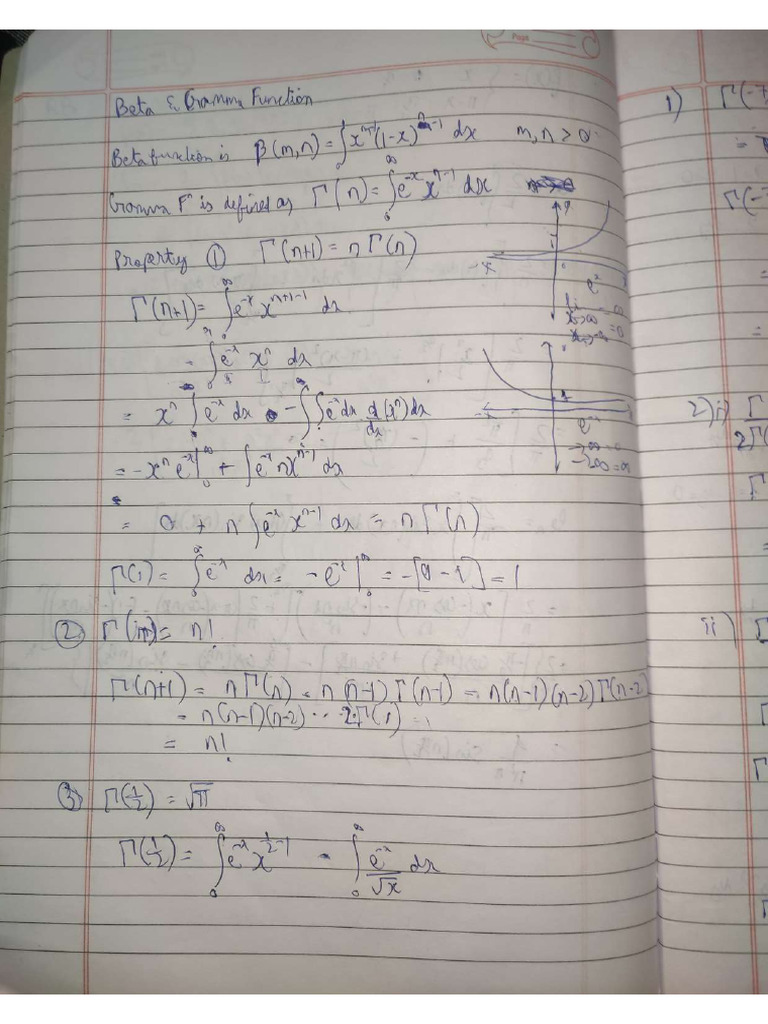 Beta & Gamma Function
Beta function is β(m,n) = ∫₀¹ x^(m-1) (1-x)^(n-1) dx m,n > 0
Gamma Fⁿ is defined as Γ(n) = ∫₀^∞ e^(-x) x^(n-1) dx
Property ① Γ(n+1) = n Γ(n)
Γ(n+1) = ∫₀^∞ e^(-x) x^(n+1-1) dx
= ∫₀^∞ e^(-x) xⁿ dx
= xⁿ ∫ e^(-x) dx - ∫ ∫ e^(-x) dx d/dx (xⁿ) dx
= -xⁿ e^(-x) |₀^∞ + ∫ e^(-x) n x^(n-1) dx
= 0 + n ∫ e^(-x) x^(n-1) dx = n Γ(n)
Γ(1) = ∫₀^∞ e^(-x) dx = -e^(-x) |₀^∞ = -[0-1] = 1
② Γ(n+1) = n!
Γ(n+1) = n Γ(n) = n (n-1) Γ(n-1) = n(n-1)(n-2) Γ(n-2)
= n(n-1)(n-2) ... 2·Γ(1) = 1
= n!
③ Γ(1/2) = √π
Γ(1/2) = ∫₀^∞ e^(-x) x^(1/2-1) = ∫₀^∞ e^(-x)/√x dx
y
x
e^x
e^(-x)
1) Γ(-
=
Γ(-
2) i) Γ
2Γ(
Γ
=
ii) Γ
Γ
Γ